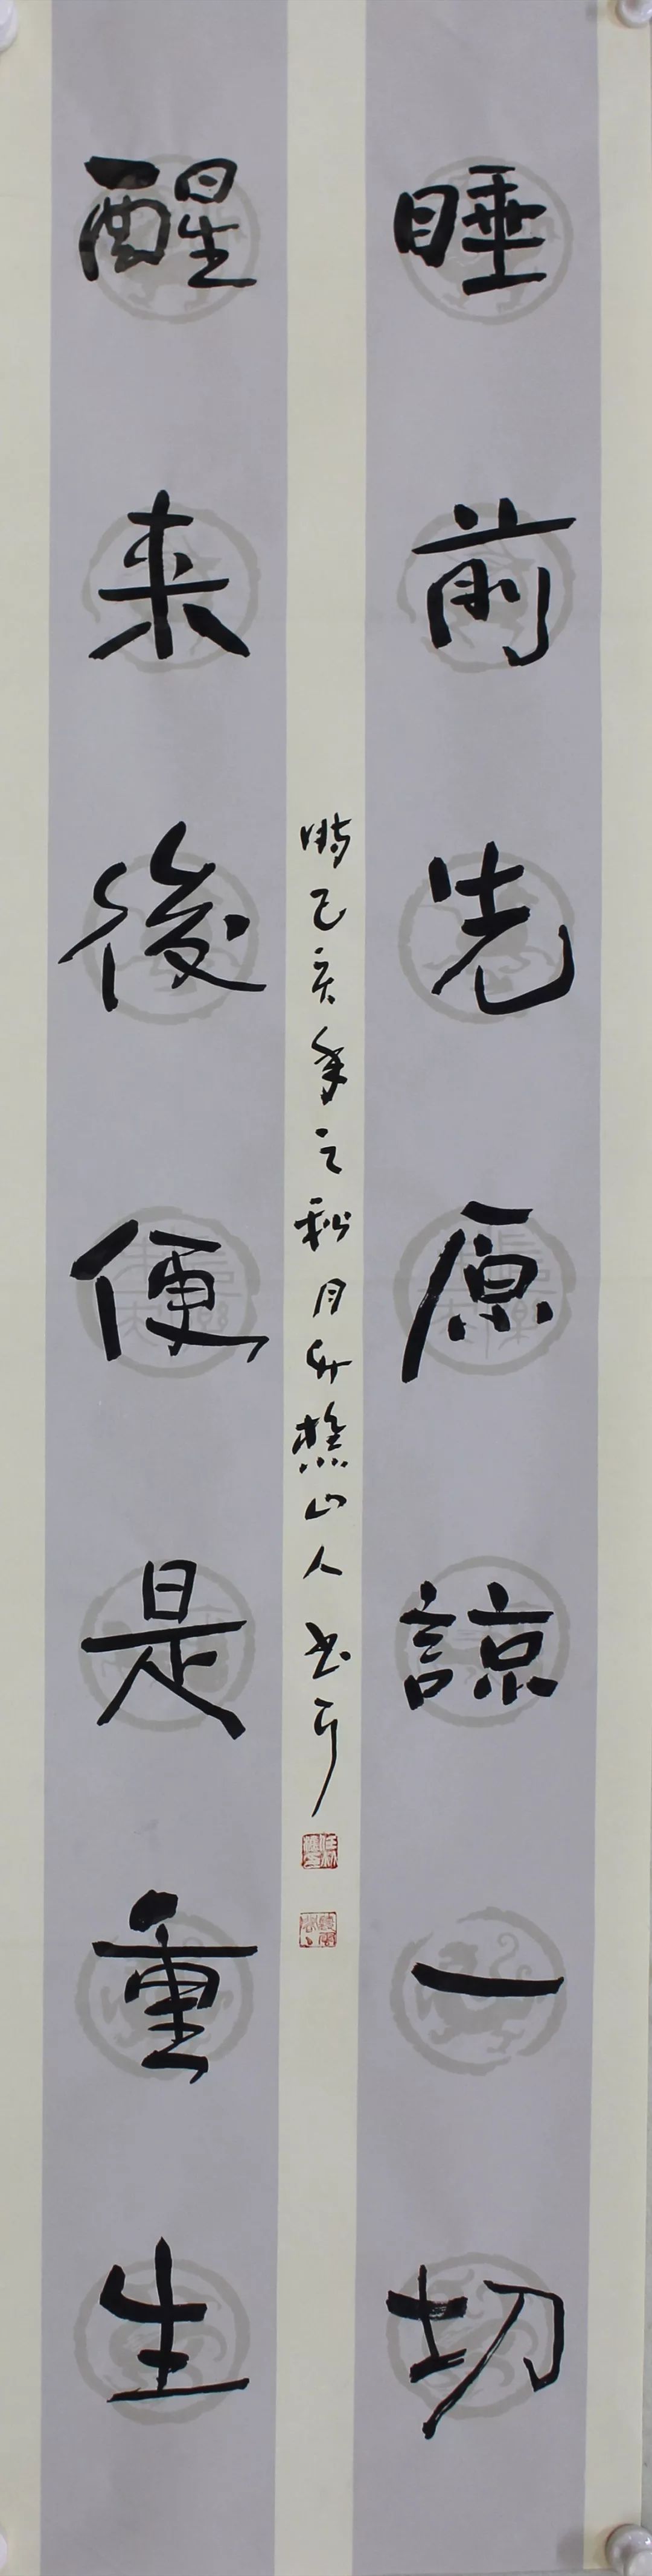 睡前先原諒一切
醒来後便是重生
時己亥年之秋月 樵山人書